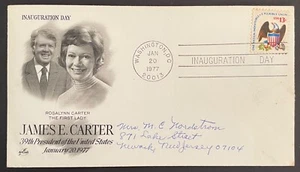 INAUGURATION DAY
ROSALYNN CARTER
THE FIRST LADY
JAMES E. CARTER
39th President of the United States
January 20, 1977
WASHINGTON, DC
JAN
20
1977
20013
INAUGURATION DAY
13c
Mrs. M. E. Nordstrom
871 Lake Street
Newark, New Jersey 07104